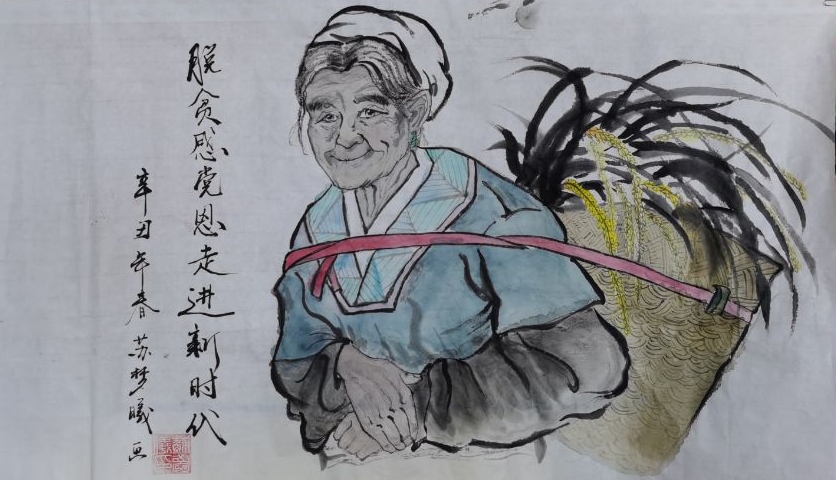 脱贫感党恩走进新时代
辛丑年春 苏梦曦 画